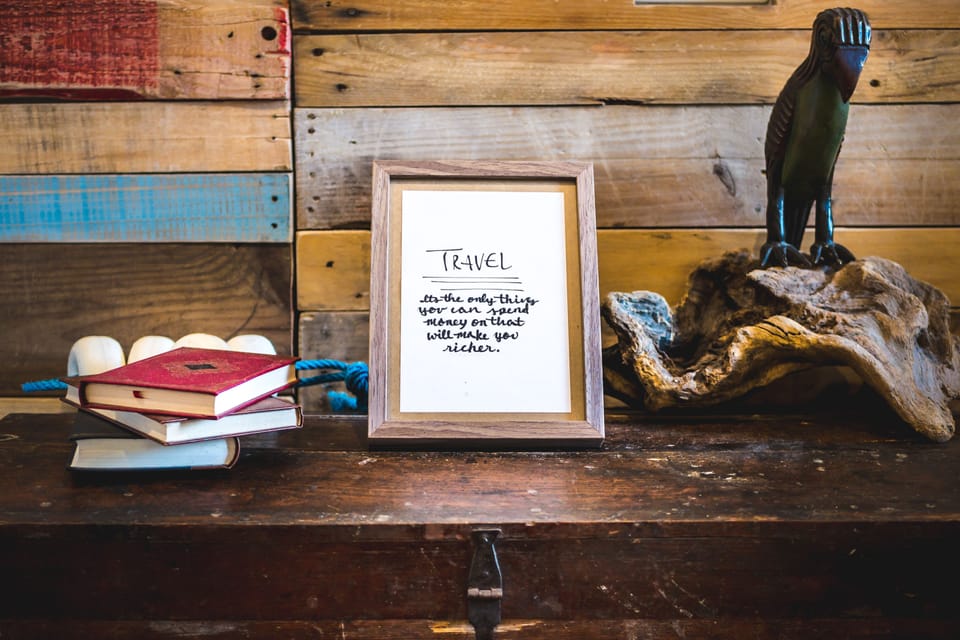 TRAVEL
its the only thing
you can spend
money on that
will make you
richer.